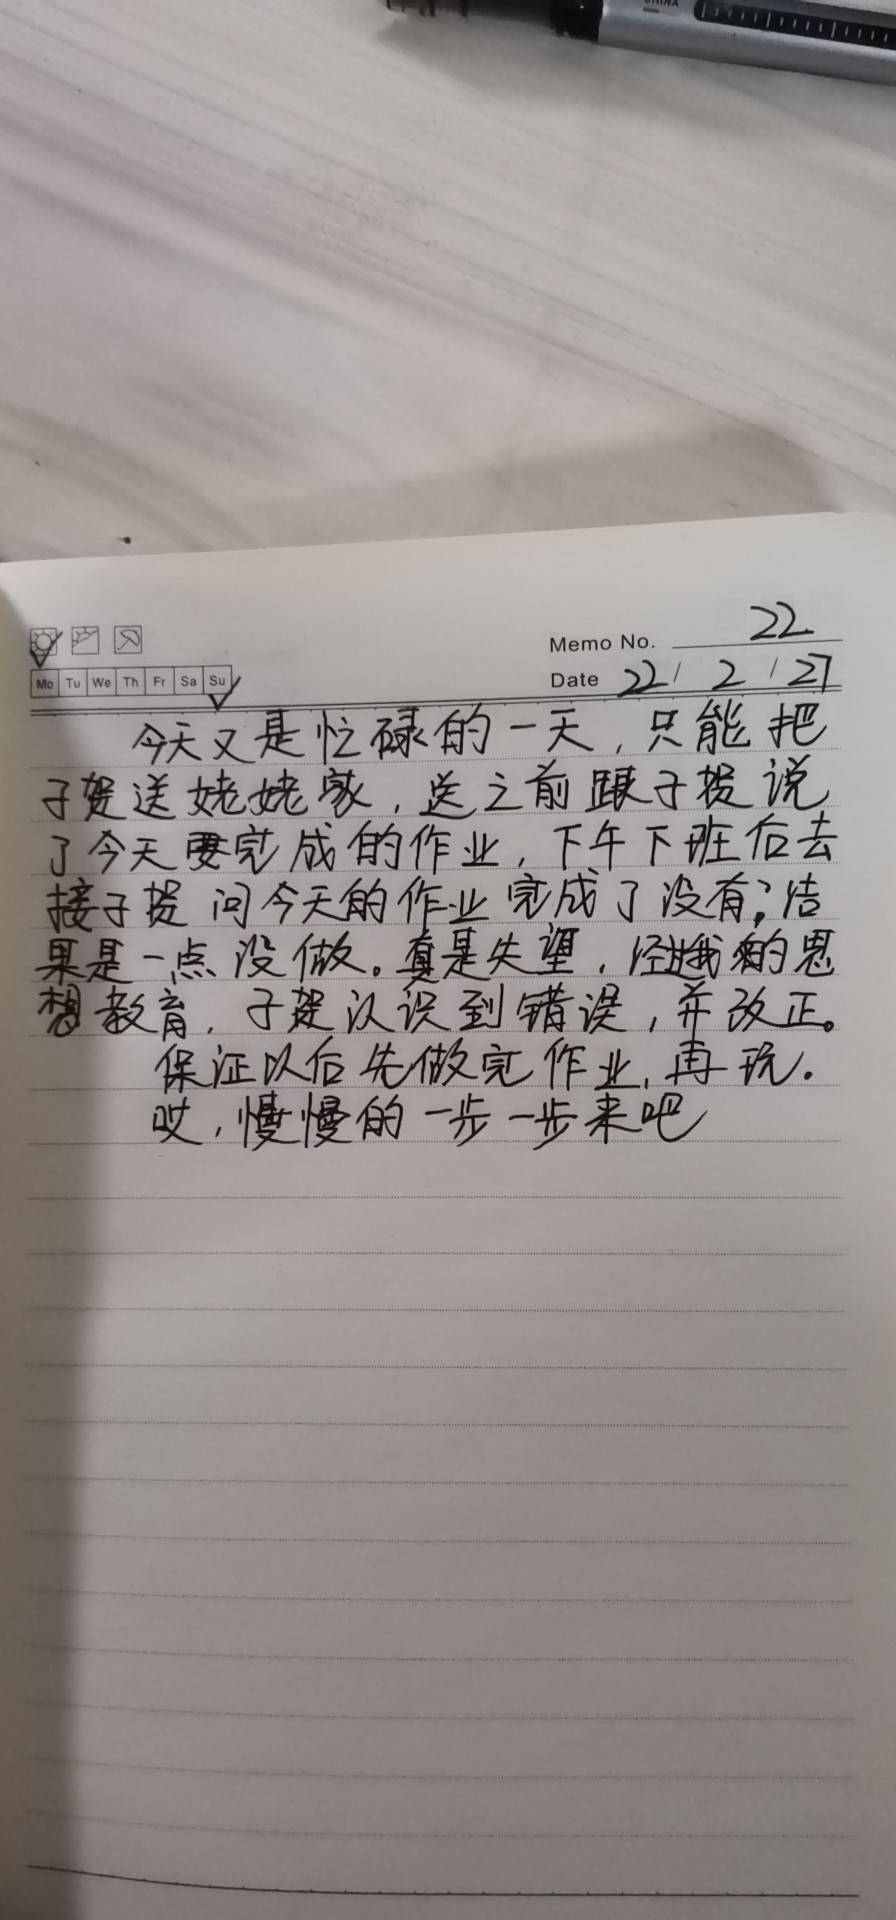 CHINA
Memo No. 22
Mo Tu We Th Fr Sa Su
Date 22/ 2 / 27
今天又是忙碌的一天，只能把
子贺送姥姥家，送之前跟子贺说
了今天要完成的作业，下午下班后去
接子贺问今天的作业完成了没有？结
果是一点没做。真是失望，经过我的思
想教育，子贺认识到错误，并改正。
保证以后先做完作业，再玩.
哎，慢慢的一步一步来吧